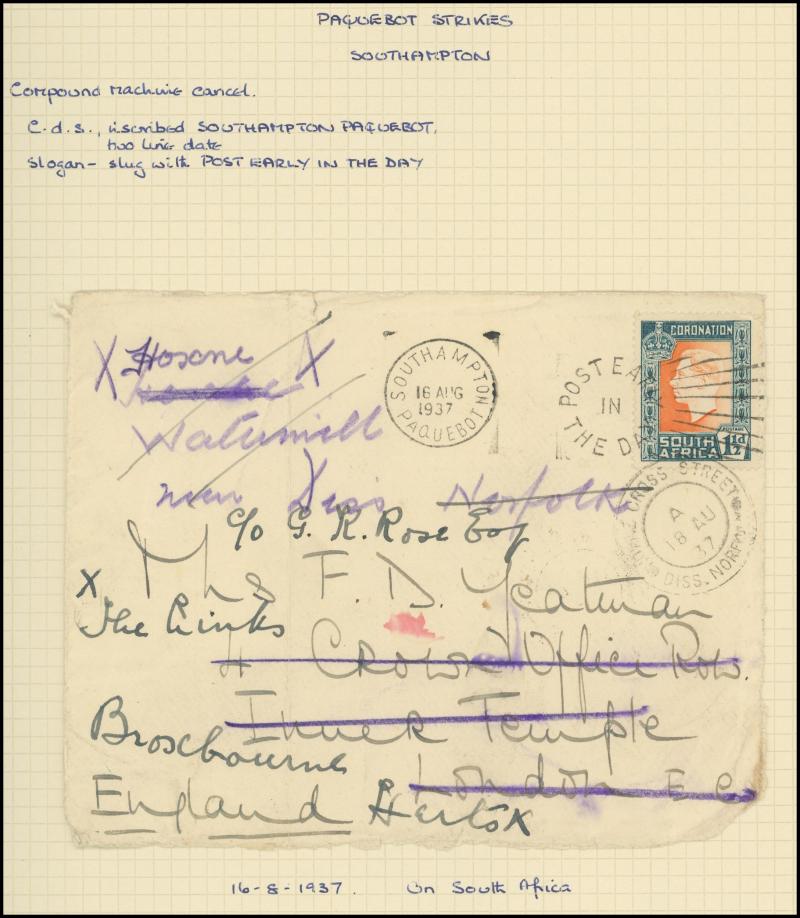 PAQUEBOT STRIKES
SOUTHAMPTON
Compound machine cancel.
C.d.s., iscribed SOUTHAMPTON PAQUEBOT,
two line date
Slogan - slug with POST EARLY IN THE DAY
SOUTHAMPTON
16 AUG
1937
PAQUEBOT
POST EARLY
IN
THE DAY
CORONATION
POSTAGE
SOUTH
AFRICA
1½d
X Hoxne X
Watermill
near Diss Norfolk
CROSS STREET
A
18 AU
37
DISS. NORFOLK
c/o G. R. Rose Esq
X Mrs F. D. Yeatman
The Links
4 Crown Office Row.
Inner Temple
Broxbourne
London E C
England Herts X
16-8-1937. On South Africa